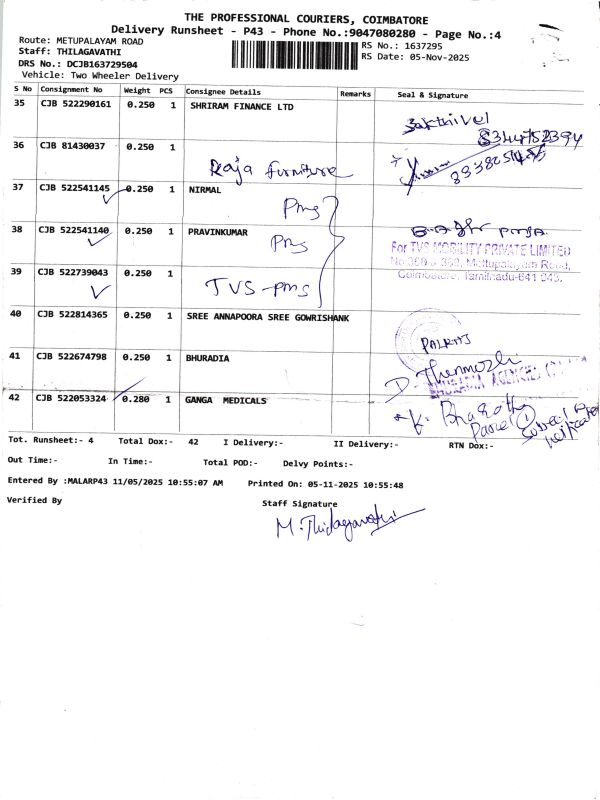 THE PROFESSIONAL COURIERS, COIMBATORE
Delivery Runsheet - P43 - Phone No.:9047080280 - Page No.:4
Route: METUPALAYAM ROAD
RS No.: 1637295
Staff: THILAGAVATHI
RS Date: 05-Nov-2025
DRS No.: DCJB163729504
Vehicle: Two Wheeler Delivery
S No Consignment No Weight PCS Consignee Details Remarks Seal & Signature
35 CJB 522290161 0.250 1 SHRIRAM FINANCE LTD
Sakthivel
36 CJB 81430037 0.250 1
Raja furniture
37 CJB 522541145 0.250 1 NIRMAL
Pms
38 CJB 522541140 0.250 1 PRAVINKUMAR
Pms
For TVS MOBILITY PRIVATE LIMITED
Mettupalayam Road,
39 CJB 522739043 0.250 1
Coimbatore, Tamilnadu-641 043.
TVS-pms
40 CJB 522814365 0.250 1 SREE ANNAPOORA SREE GOWRISHANK
PALRAJ
41 CJB 522674798 0.250 1 BHURADIA
D. Thenmozhi
42 CJB 522053324 0.280 1 GANGA MEDICALS
K. Bharathy
Parcel 1
Tot. Runsheet:- 4 Total Dox:- 42 I Delivery:- II Delivery:- RTN Dox:-
Out Time:- In Time:- Total POD:- Delvy Points:-
Entered By :MALARP43 11/05/2025 10:55:07 AM Printed On: 05-11-2025 10:55:48
Verified By Staff Signature
M. Thilagavathi